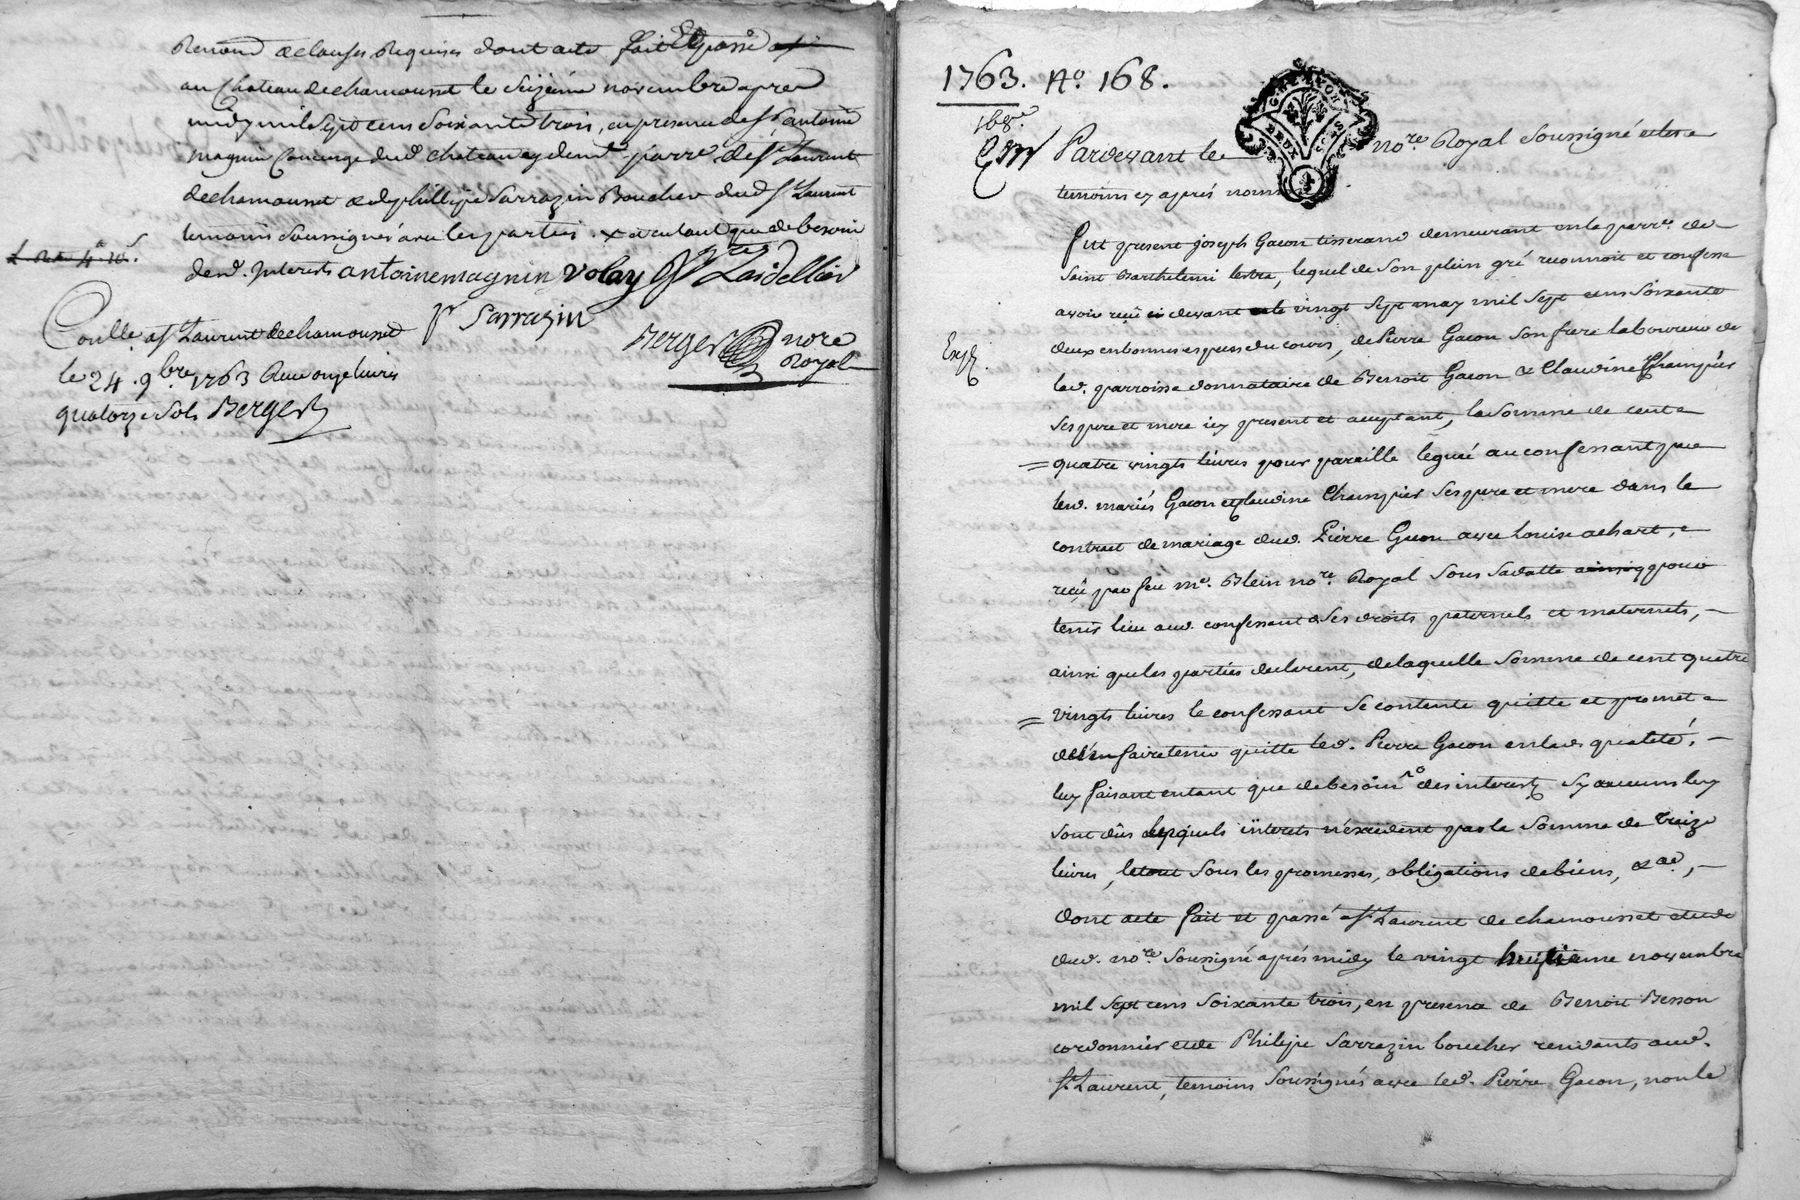 Renond. & clauses Requises dont acte fait Et passé
au Chateau de chamousset le Seizième novembre apres
midy mil Sept cens Soixante trois, en presence de Sr antoine
magnin Concierge dud. chateau y demt. parre. de St. Laurent
de chamousset & de phillipe Sarrazin Boucher dud St. Laurent
temoins Soussignés avec les parties. + et entant que de besoin
desd. Interets antoinemagnin Volay
pr Sarrazin
Berger nore
Royal
Conllé. a St Laurent de chamousset
le 24. 9bre 1763 Reçu onze livres
quatorze Sols Berger
1763. No. 168.
168e.
Pardevant le nore. Royal Soussigné et les
temoins cy après nommés
Exp.
fut present joseph Gacon tisserand demeurant en la parre. de
Saint Barthelemi lestra, lequel de Son plein gré reconnoit et confesse
avoir reçu ci devant le vingt Sept may mil Sept cens Soixante
deux en bonnes especes du cours, de Pierre Gacon Son frere laboureur de
lad. parroisse donnataire de Benoit Gacon & Claudine Champier
Ses pere et mere icy present et acceptant, la Somme de cent
quatre vingts livres pour pareille leguée au confessant par
led. mariés Gacon et Claudine Champier Ses pere et mere dans le
contrat de mariage dud. Pierre Gacon avec Louise achart,
reçu par feu me. Blein nore. Royal Sous Sa datte pour
tenir lieu aud. confessant de Ses droits paternels et maternels,
ainsi que les parties declarent, de laquelle Somme de cent quatre
vingts livres le confessant Se contente quitte et promet
de l'en faire tenir quitte led. Pierre Gacon en lad. qualité,
luy faisant entant que de besoin des interests Sy aucuns luy
Sont dûs lesquels interets n'excedent pas la Somme de treize
livres, le tout Sous les promesses, obligations de biens, &ca.,
dont acte fait et passé a St. Laurent de chamousset etude
dud. nore. Soussigné après midy le vingt huitième novembre
mil Sept cens Soixante trois, en presence de Benoit Besson
cordonnier et de Philipe Sarrazin boucher residants aud.
St. Laurent, temoins Soussignés avec led. Pierre Gacon, non le